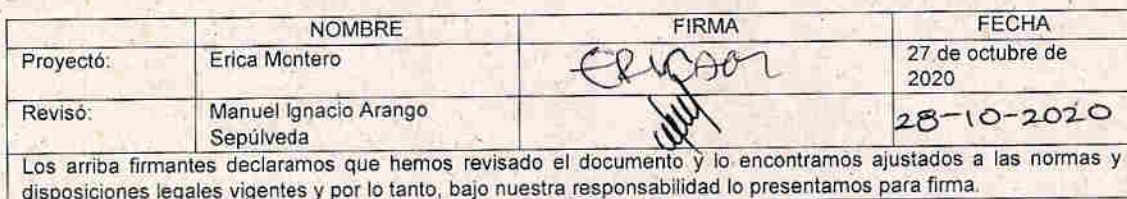 NOMBRE FIRMA FECHA
Proyectó: Erica Montero 27 de octubre de
2020
Revisó: Manuel Ignacio Arango 28-10-2020
Sepúlveda
Los arriba firmantes declaramos que hemos revisado el documento y lo encontramos ajustados a las normas y
disposiciones legales vigentes y por lo tanto, bajo nuestra responsabilidad lo presentamos para firma.